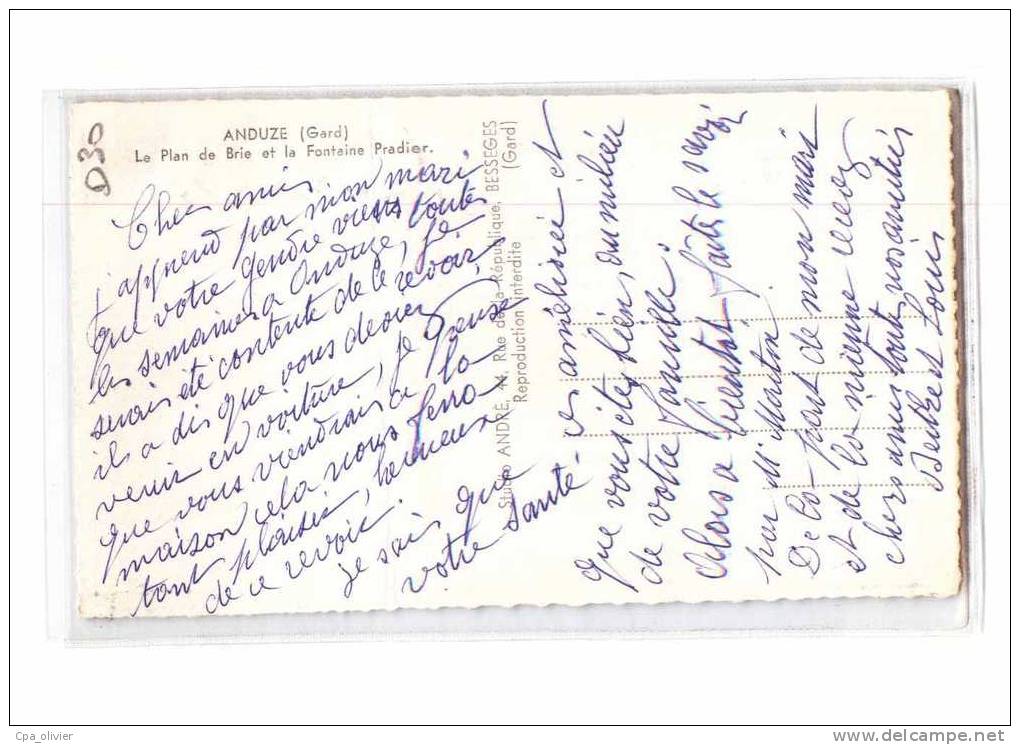 D30
ANDUZE (Gard)
Le Plan de Brie et la Fontaine Pradier.
Chers amis
J'apprend par mon mari
que votre gendre viens toutes
les semaines a Anduze, Je
serais été contente de le revoir,
il a dis que vous devriez
venir en voiture, je pense
que vous viendrais a la
maison cela nous fera
tant plaisir, heureux
de ce revoir.
je sais que
votre santé
Studio ANDRÉ, 14, Rue de la République, BESSEGES
(Gard)
Reproduction interdite
es améliorée et
que vous êtes bien, au milieu
de votre famille.
Alors a bientôt faites le savoir
par Mr Martin
De la part de mon mari
et de la mienne recevez
chers amis toute nos amitiés
Louis
Cpa_olivier
http://www.delcampe.net